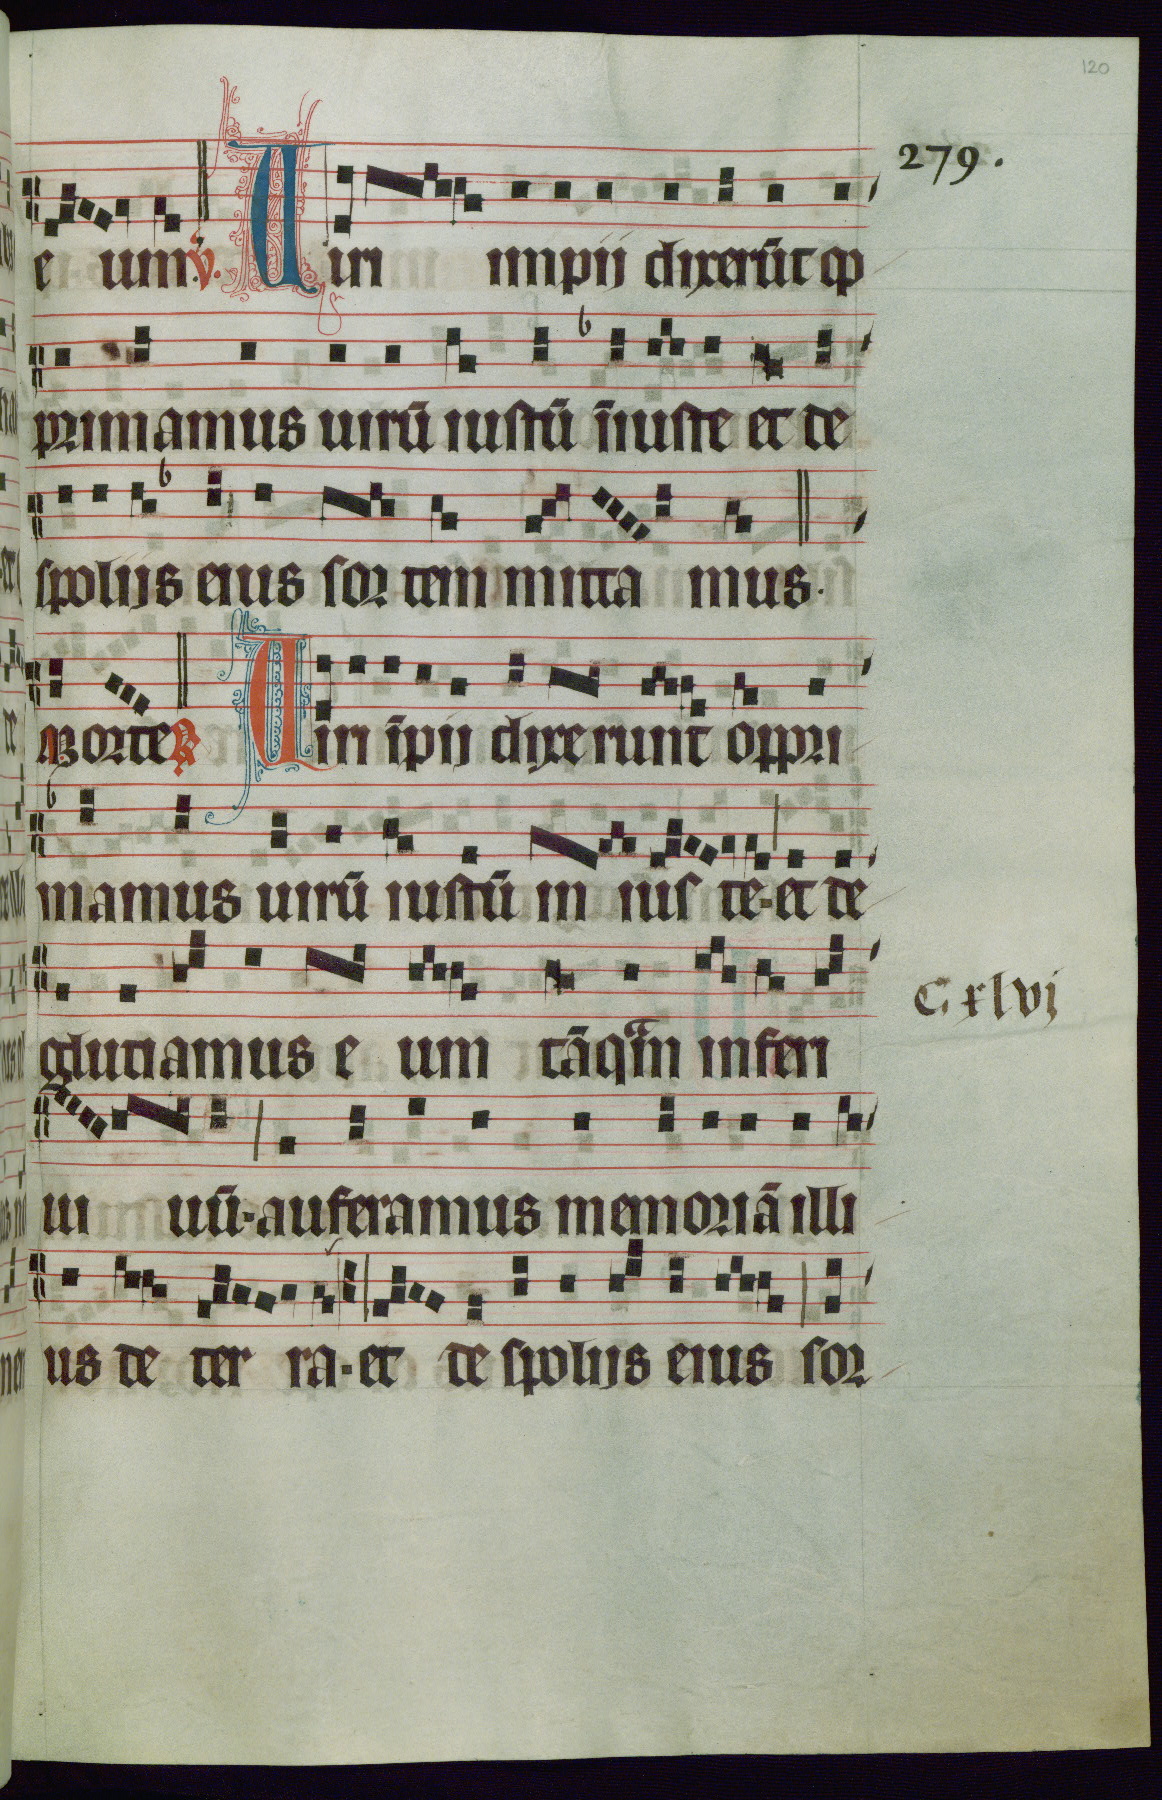 120
279.
e um. v. Uiri impij dixerūt op
primamus uirū iustū īiuste et de
spolijs eius sor tem mitta mus.
Morte R Uiri īpij dixerunt oppri
mamus uirū iustū in ius te. et de
glutiamus e um tāqm̄ inferi
C xlvi
ui uū. auferamus memoriā illi
us de ter ra. et de spolijs eius sor